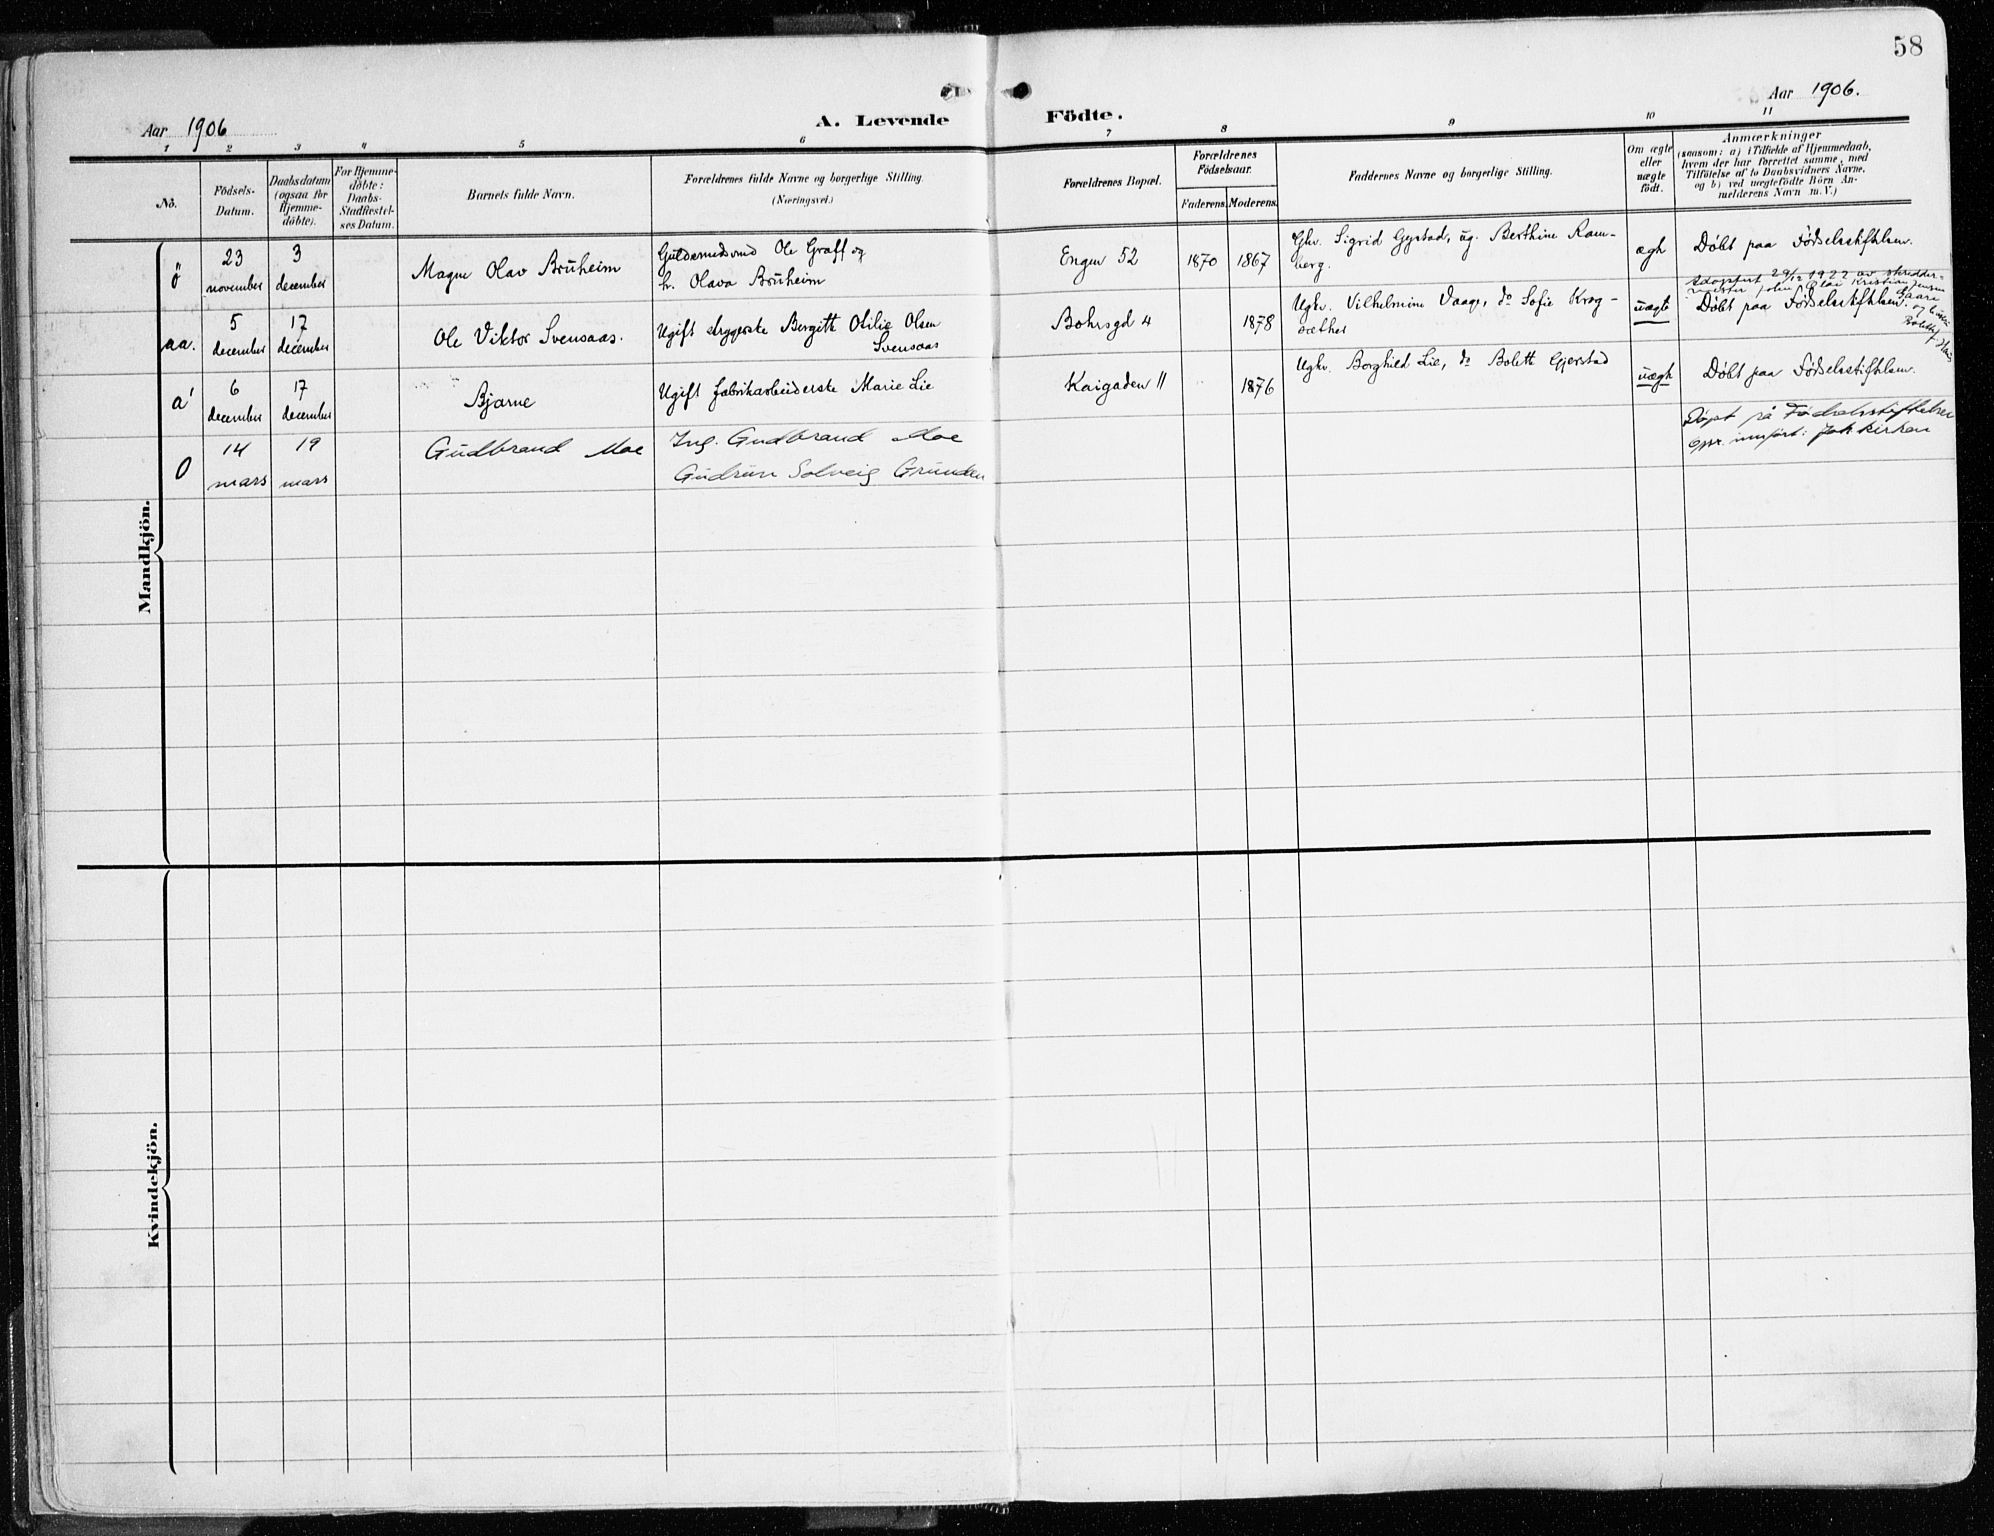 58
Aar 1906
A. Levende Födte.
Aar 1906.
1 2 3 4 5 6 7 8 9 10 11
No.
Födsels-
Datum.
Daabsdatum
(ogsaa for
Hjemme-
döbte).
For Hjemme-
döbte:
Daabs-
Stadfæstel-
ses Datum.
Barnets fulde Navn.
Forældrenes fulde Navne og borgerlige Stilling.
(Næringsvei.)
Forældrenes Bopæl.
Forældrenes
Födselsaar.
Faderens. Moderens.
Faddernes Navne og borgerlige Stilling.
Om ægte
eller
uægte
födt.
Anmærkninger
(saasom: a) i Tilfælde af Hjemmedaab,
hvem der har forrettet samme, med
Tilföielse af to Daabsvidners Navne,
og b) ved uægtefödte Börn An-
melderens Navn m. V.)
Mandkjön.
ö
23
november
3
december
Magne Olav Bruheim
Guldsmedsvend Ole Graff og
h. Olava Bruheim
Engen 52
1870
1867
Ghv. Sigrid Gystad, ug. Berthine Ram-
berg.
ægte
Døbt paa Fødselsstiftelsen.
aa.
5
december
17
december
Ole Viktor Svensaas.
Ugift strygerske Bergitte Otilie Olsen
Svensaas
Bohrsgd 4
1878
Ughv. Vilhelmine Vaage, do Sofie Krog-
sæther
uægte
Adoptert 29/12 1922 av skredder-
mester Olai Kristian Jensen
Døbt paa Fødselsstiftelsen.
a'
6
december
17
december
Bjarne
Ugift fabrikarbeiderske Marie Lie
Kaigaden 11
1876
Ughv. Borghild Lie, do Bolette Gjerstad
uægte
Døbt paa Fødselsstiftelsen.
O
14
mars
19
mars
Gudbrand Moe
Ing. Gudbrand Moe
Gudrun Solveig Grunden
Døpt på Fødselsstiftelsen
Opr. innført: Joh kirken
Kvindekjön.